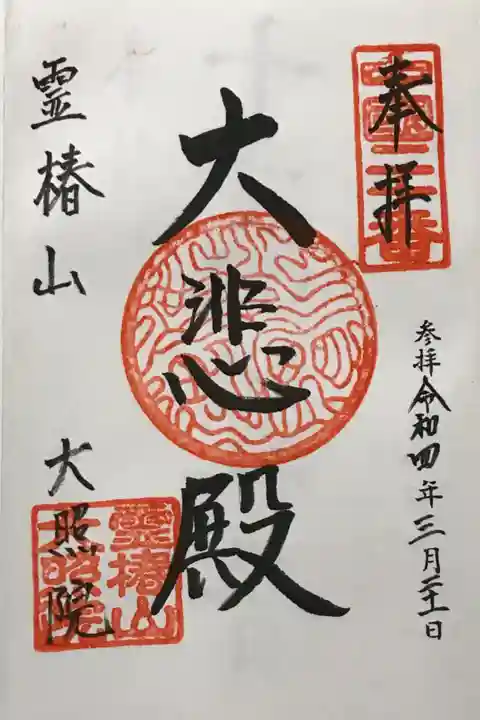 奉拝
参拝令和四年三月二十一日
大悲殿
霊椿山
大照院
霊椿山